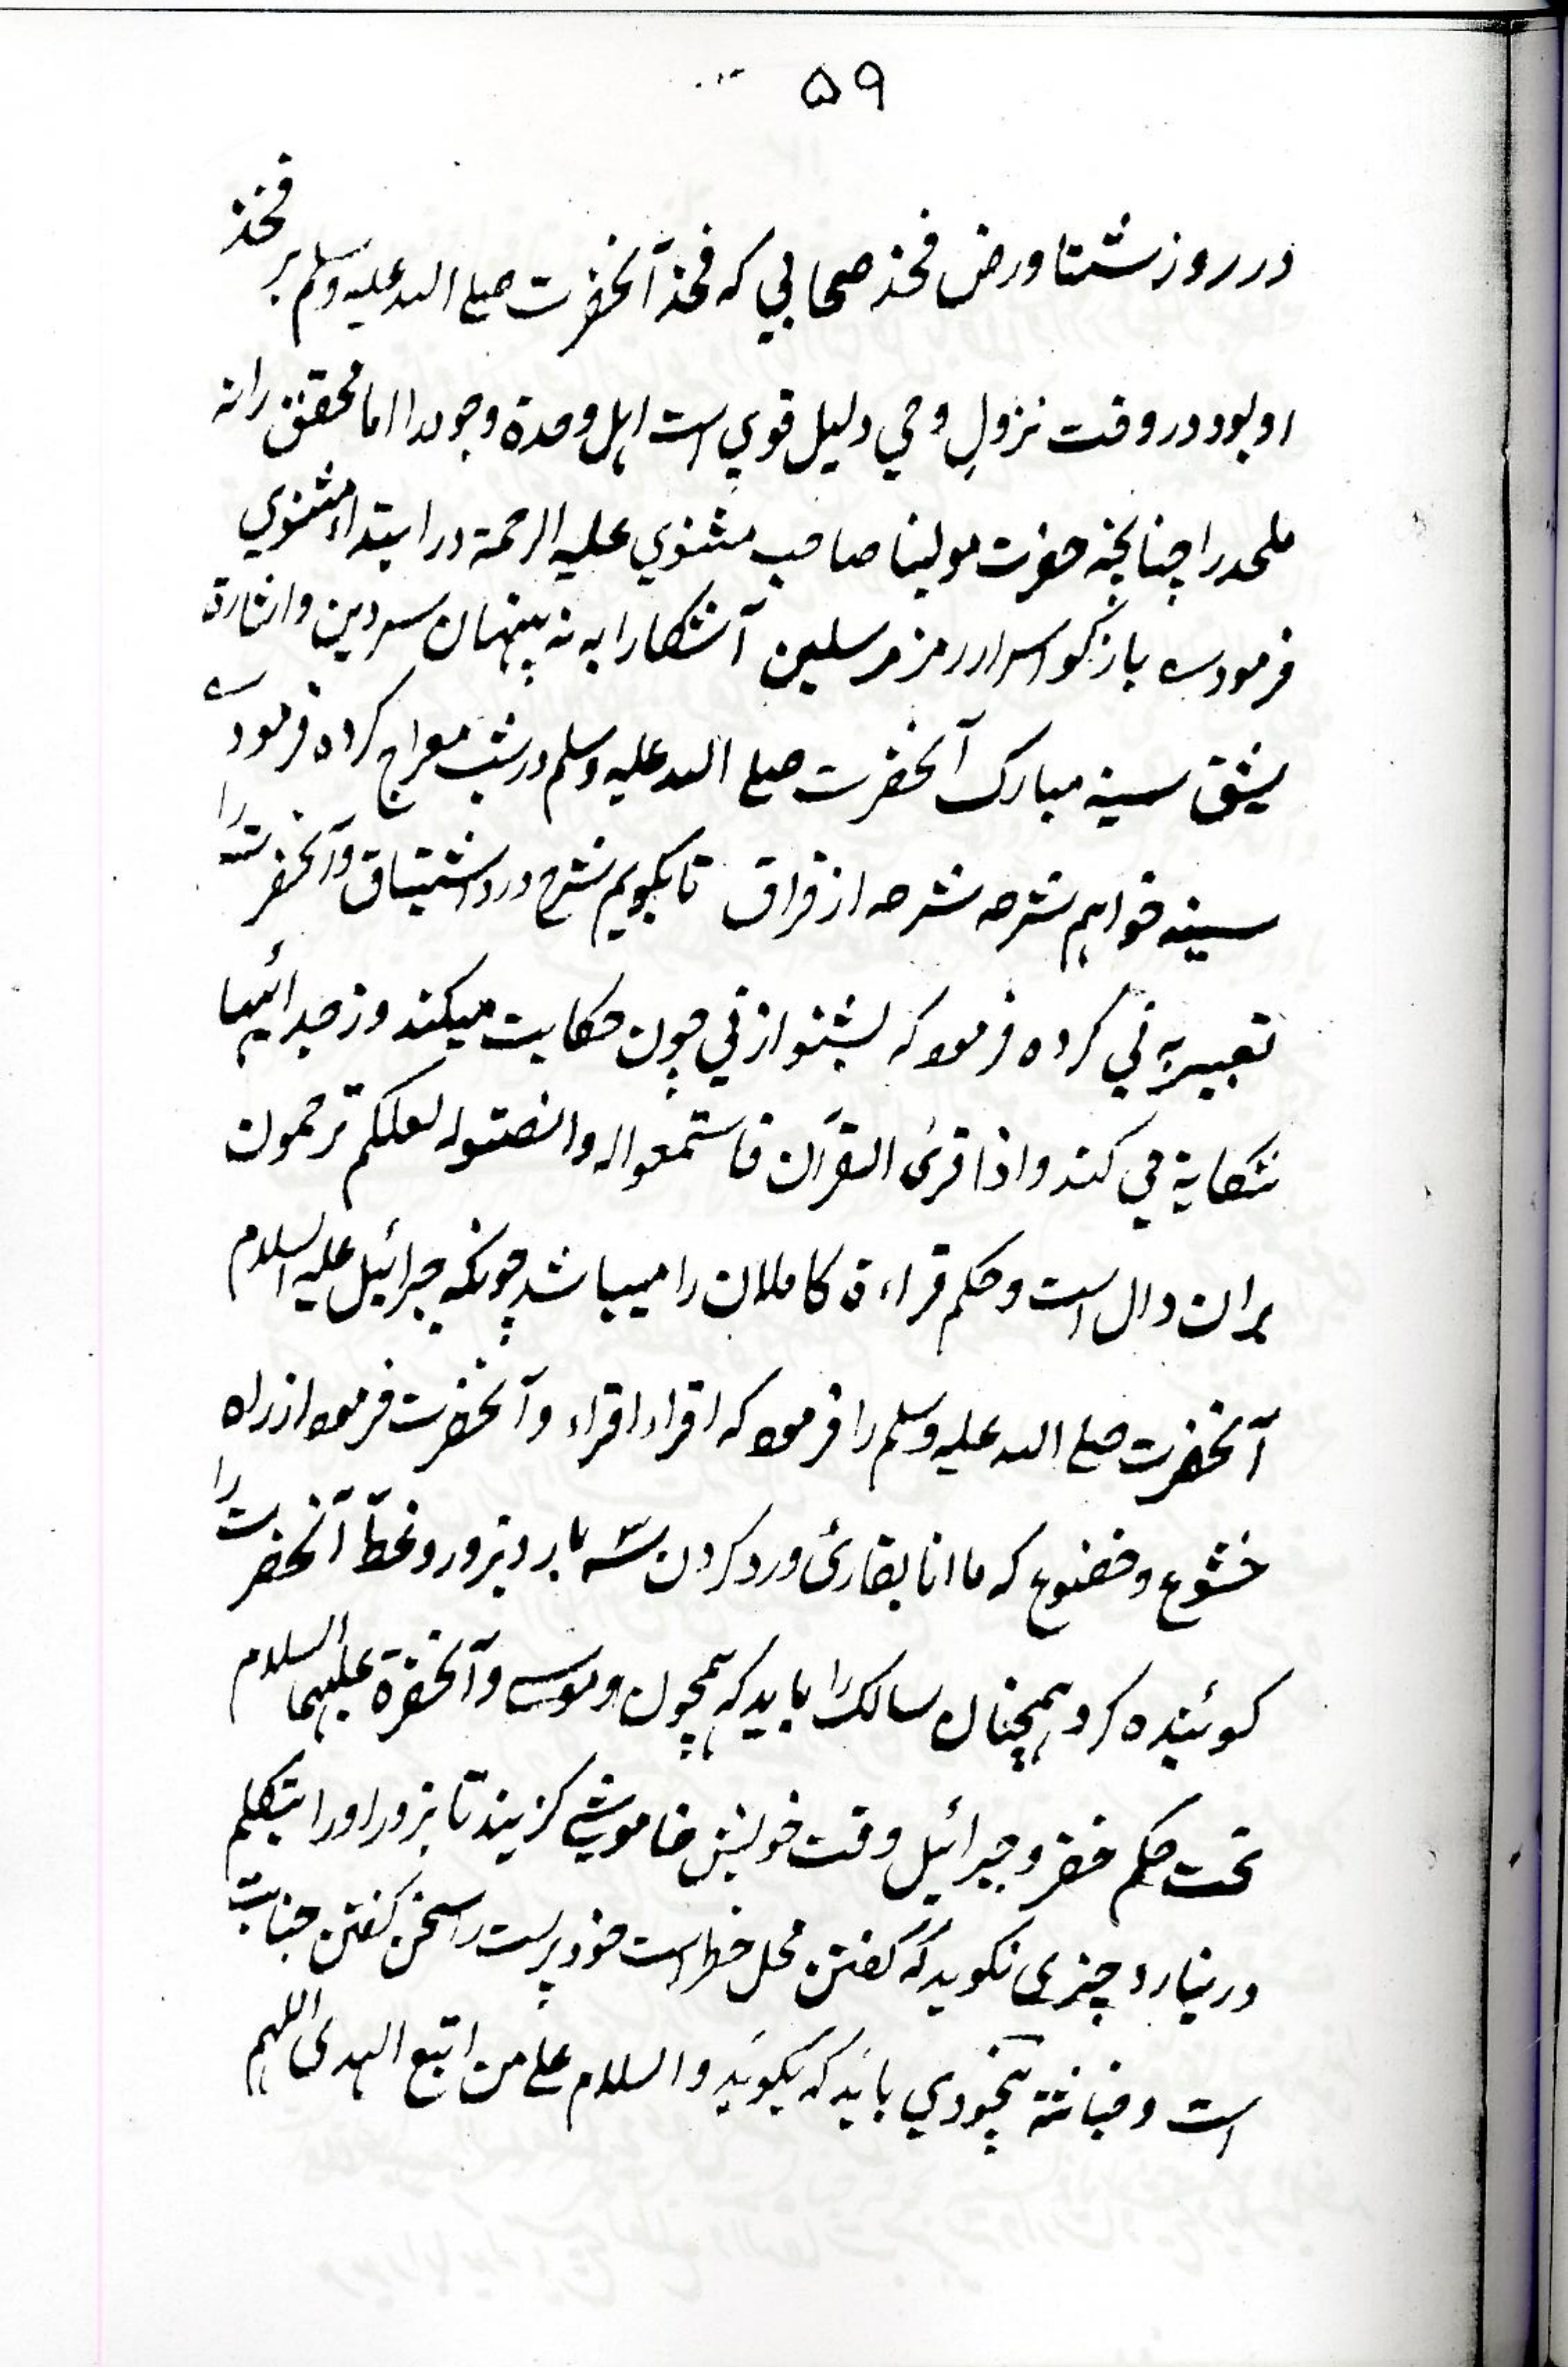 ۵۹
در روز شتا و رض فخذ صحابي که فخذ آنحضرت صلے الله علیه وسلم بر فخذ
او بود در وقت نزولِ وحي دلیل قوي است اہل وحدة وجود را اما محقق را نه
ملحد را چنانچه حضرت مولینا صاحب مثنوي علیه الرحمة در ابتداء مثنوي
فرموده باز گو اسرار رمز مرسلین آشکارا به نه پنهان سر دین و اشارة
بشق سینه مبارک آنحضرت صلے الله علیه وسلم در شب معراج کرده فرموده
سینه خواهم شرحه شرحه از فراق تا بگویم شرح درد اشتیاق و آنحضرت را
تعبیر به ني کرده فرمود که بشنو از ني چون حکایت میکند وز جدائیها
شکایة مي کند و اذا قرئ القرآن فاستمعوا له وانصتوا لعلکم ترحمون
بران دال است و حکم قراءة کاملان را میباشد چونکه جبرائیل علیه السلام
آنحضرت صلے الله علیه وسلم را فرمود که اقراء اقراء و آنحضرت فرمود از راه
خشوع و خضوع که ما انا بقارئ و رد کردن سه بار و بزور و غط آنحضرت را
گوئینده کرد همچنان سالک را باید که همچون موسے و آنحضرة علیهما السلام
تحت حکم خضر و جبرائیل وقت خویش خاموشي گزیند تا بزور او را بتکلم
در نیارد چیزی نگوید که گفتن محل خطر است خود پرست را سخن گفتن جنایت
است و خباثة بیخودي باید که بگوید والسلام علی من اتبع الهدی اللهم